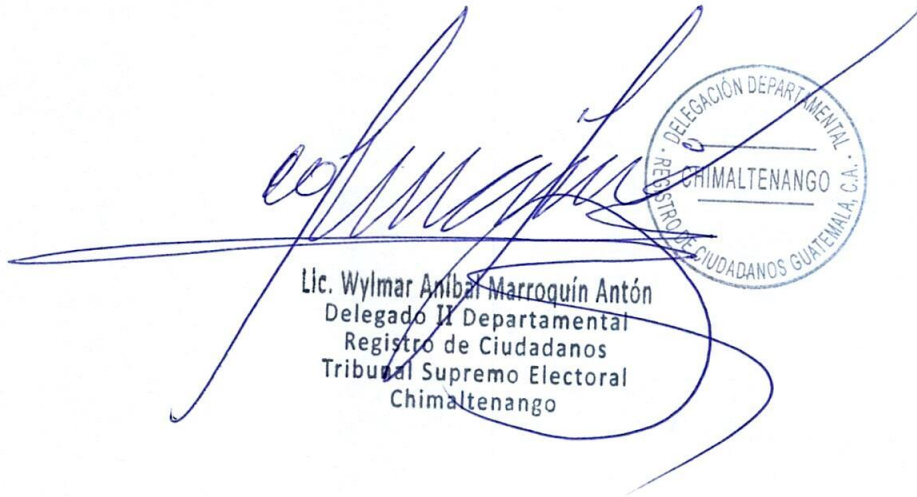 DELEGACIÓN DEPARTAMENTAL
CHIMALTENANGO
REGISTRO DE CIUDADANOS GUATEMALA, C.A.
Lic. Wylmar Aníbal Marroquín Antón
Delegado II Departamental
Registro de Ciudadanos
Tribunal Supremo Electoral
Chimaltenango